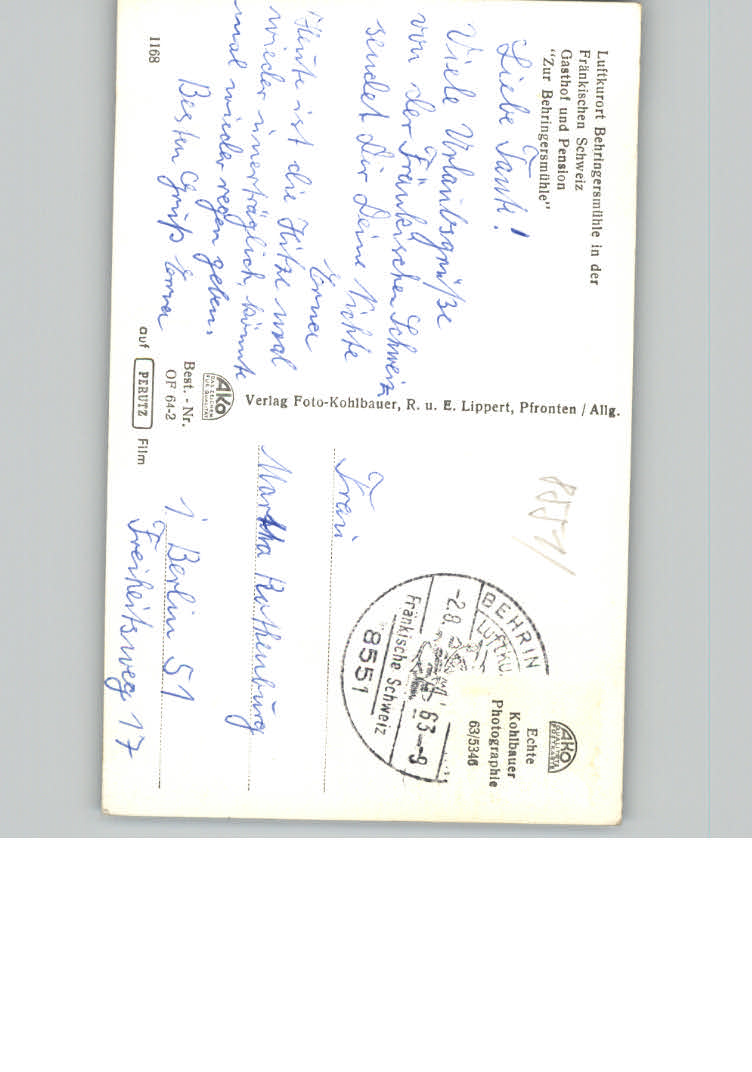 Luftkurort Behringersmühle in der
Fränkischen Schweiz
Gasthof und Pension
"Zur Behringersmühle"
Liebe Tante!
Viele Urlaubsgrüße
von der Fränkischen Schweiz
sendet Dir Deine Nichte
Erna
Heute ist die Hitze mal
wieder unerträglich, könnte
mal wieder regen geben.
Besten Gruß Erna
1168
Verlag Foto-Kohlbauer, R. u. E. Lippert, Pfronten / Allg.
AKO
DAS ZEICHEN
FÜR QUALITÄT
Best. - Nr.
OF 64-2
auf PERUTZ Film
AKO
QUALITÄTS
POSTKARTE
Echte
Kohlbauer
Photographie
63/5346
8551
BEHRIN
LUFTKU
-2.8.
63--9
Fränkische Schweiz
8551
Frau
Martha Rothenburg
1 Berlin 51
Freiheitsweg 17